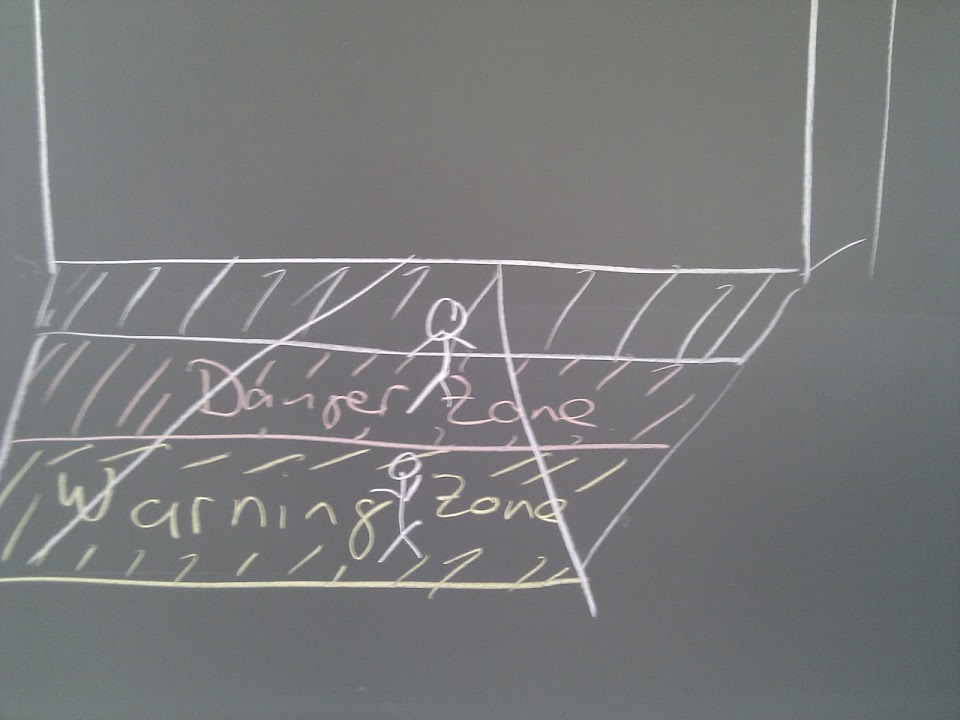 Danger Zone
Warning Zone